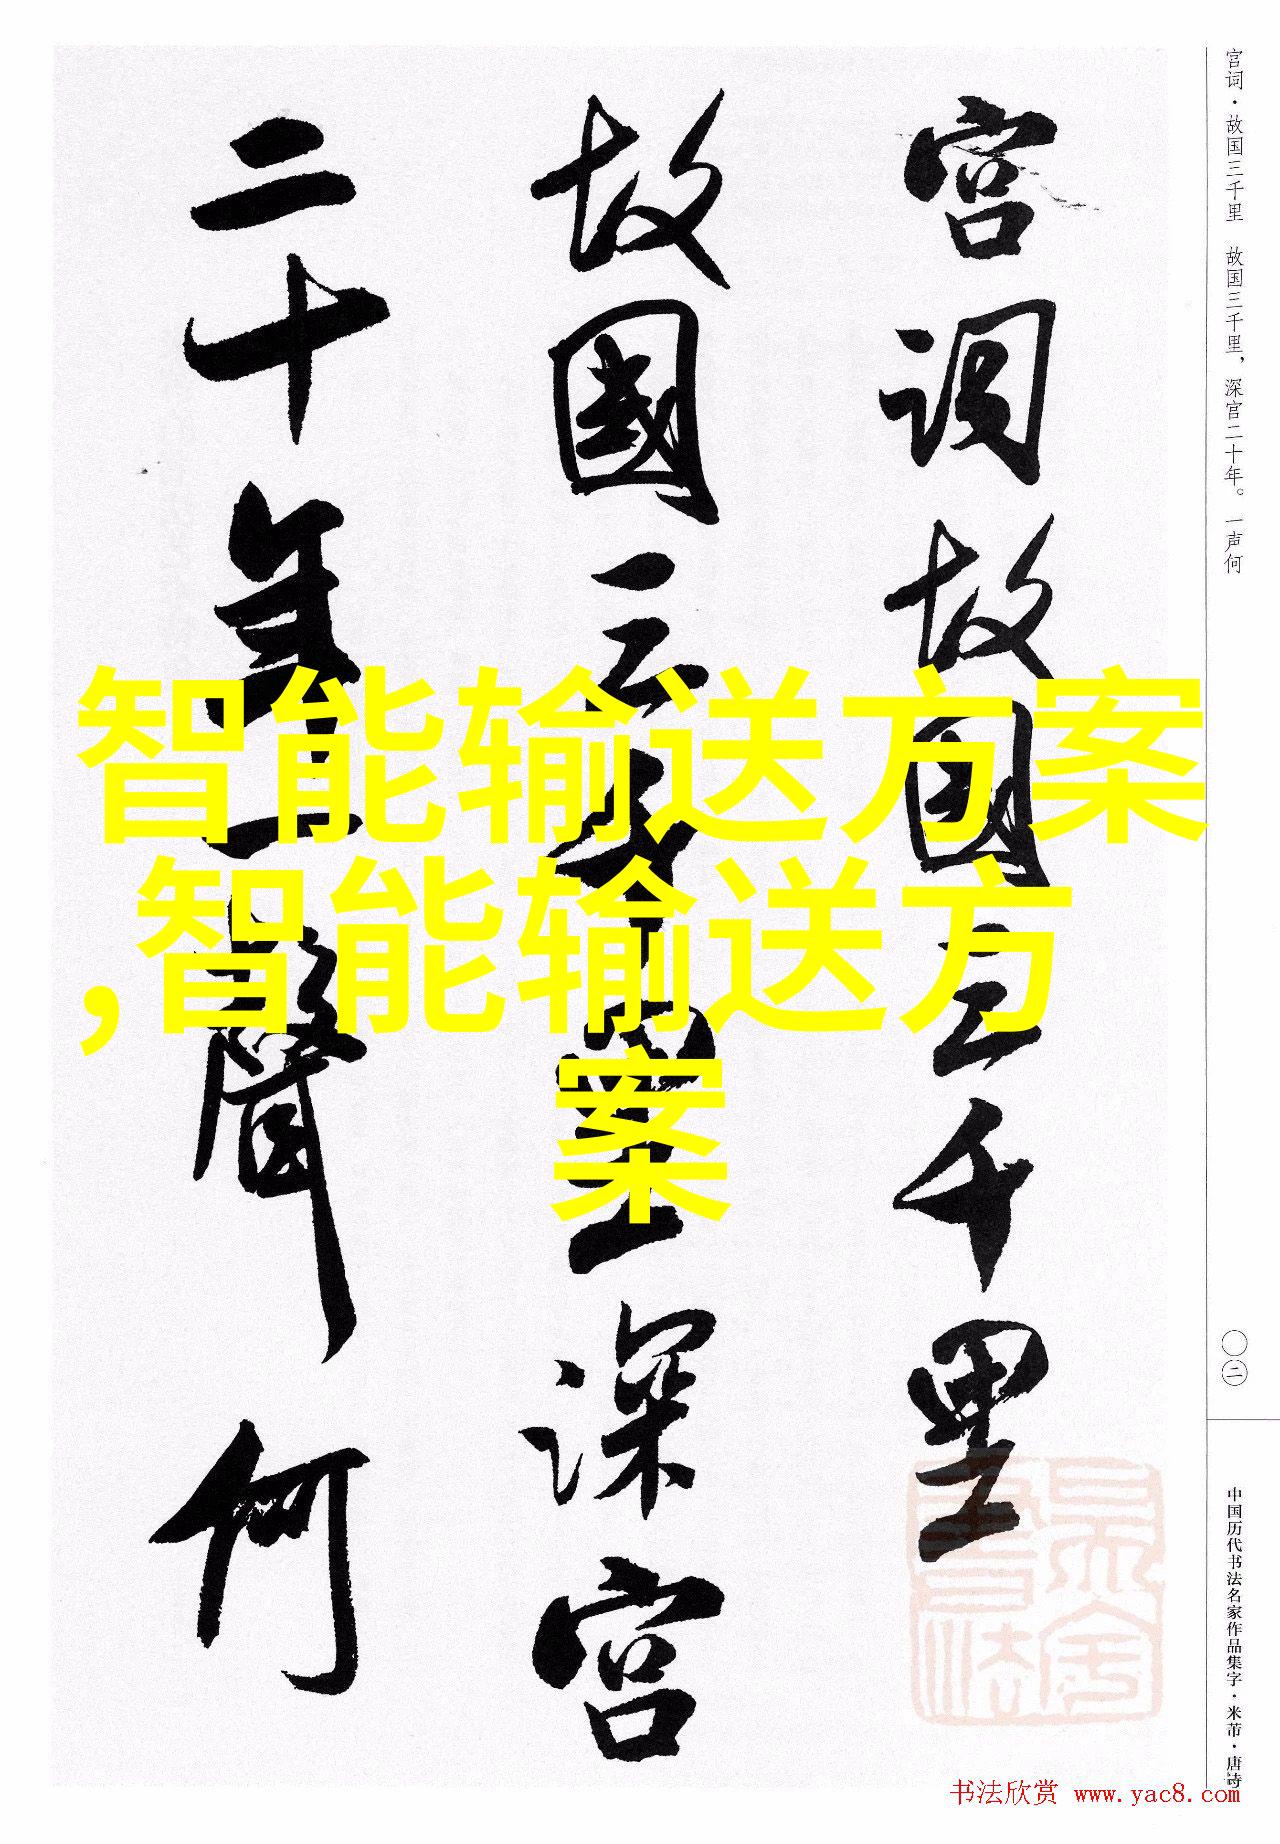 宫词故国三千里
故國三千里深宫
二十年一聲何
智能输送方案
,智能输送方
案
宫词·故国三千里 故国三千里，深宫二十年。一声何
〇二
中国历代书法名家作品集字·米芾·唐诗
书法欣赏 www.yac8.com